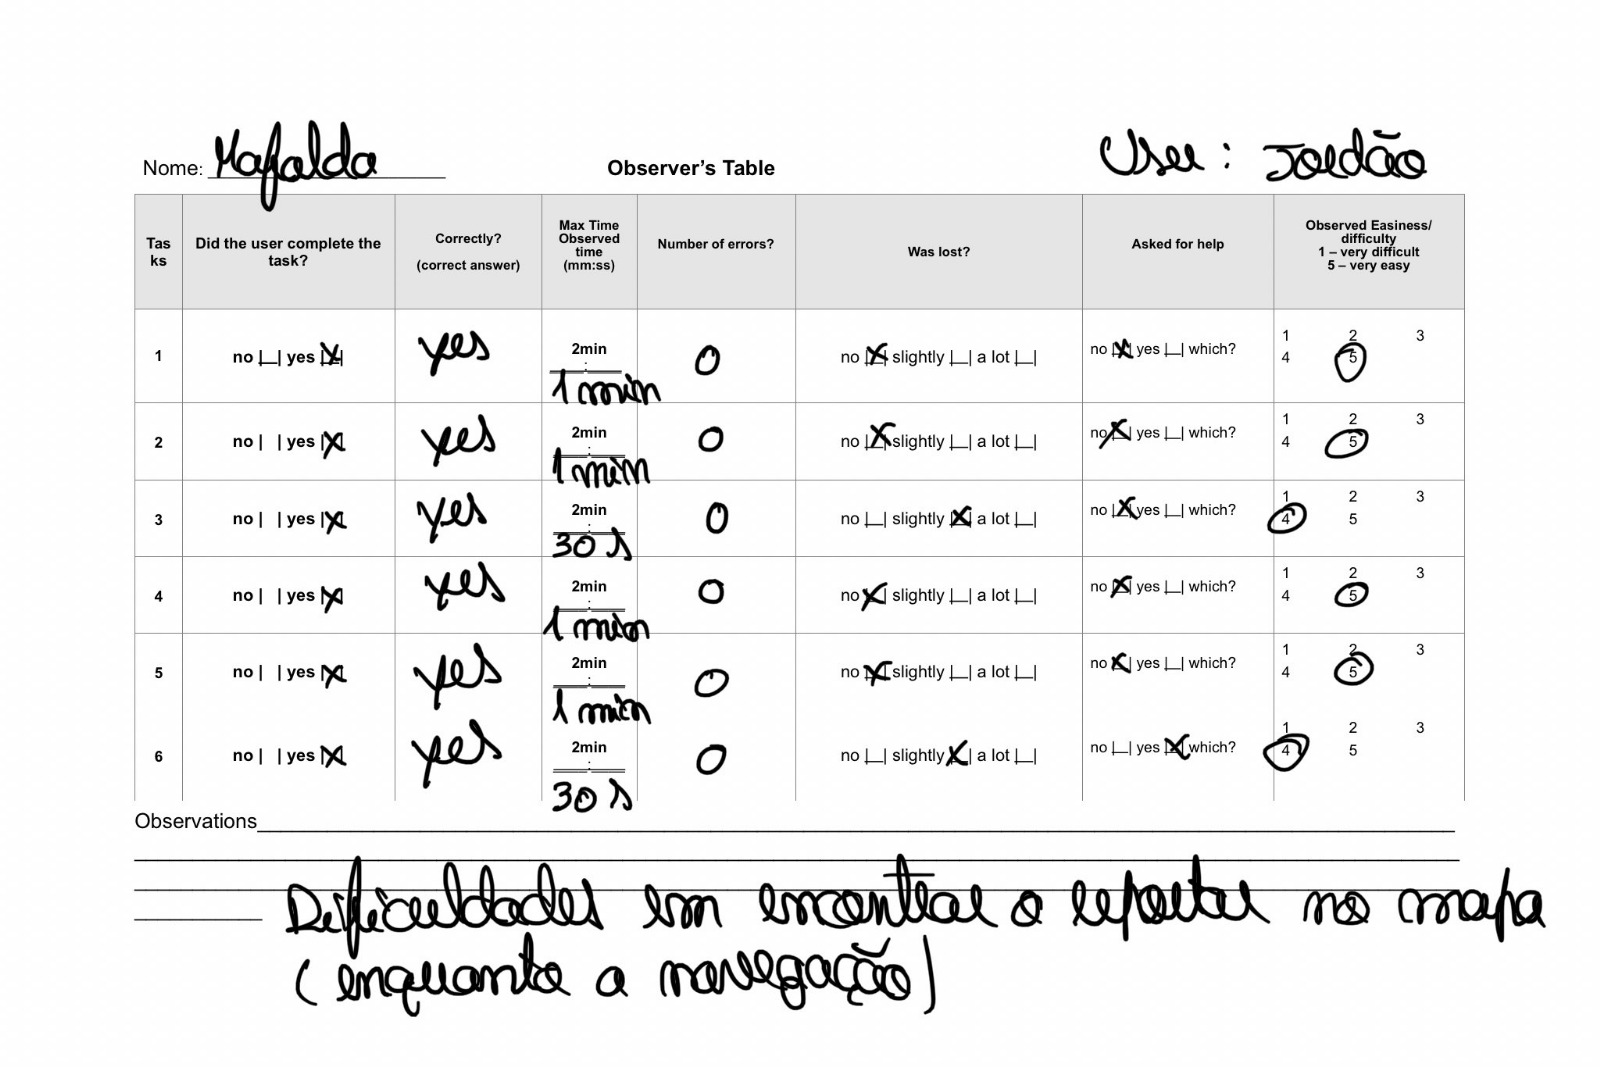 Nome: Mafalda Observer's Table User : Jordão
Tasks Did the user complete the task? Correctly? (correct answer) Max Time Observed time (mm:ss) Number of errors? Was lost? Asked for help Observed Easiness/ difficulty 1 – very difficult 5 – very easy
1 no |__| yes |X| yes 2min __:__ 1 min 0 no |X| slightly |__| a lot |__| no |X| yes |__| which? 1 2 3 4 5
2 no | | yes |X| yes 2min __:__ 1 min 0 no |X| slightly |__| a lot |__| no |X| yes |__| which? 1 2 3 4 5
3 no | | yes |X| yes 2min __:__ 30 s 0 no |__| slightly |X| a lot |__| no |X| yes |__| which? 1 2 3 4 5
4 no | | yes |X| yes 2min __:__ 1 min 0 no |X| slightly |__| a lot |__| no |X| yes |__| which? 1 2 3 4 5
5 no | | yes |X| yes 2min __:__ 1 min 0 no |X| slightly |__| a lot |__| no |X| yes |__| which? 1 2 3 4 5
6 no | | yes |X| yes 2min __:__ 30 s 0 no |__| slightly |X| a lot |__| no |__| yes |X| which? 1 2 3 4 5
Observations
Dificuldades em encontrar o reportar no mapa
(enquanto a navegação)